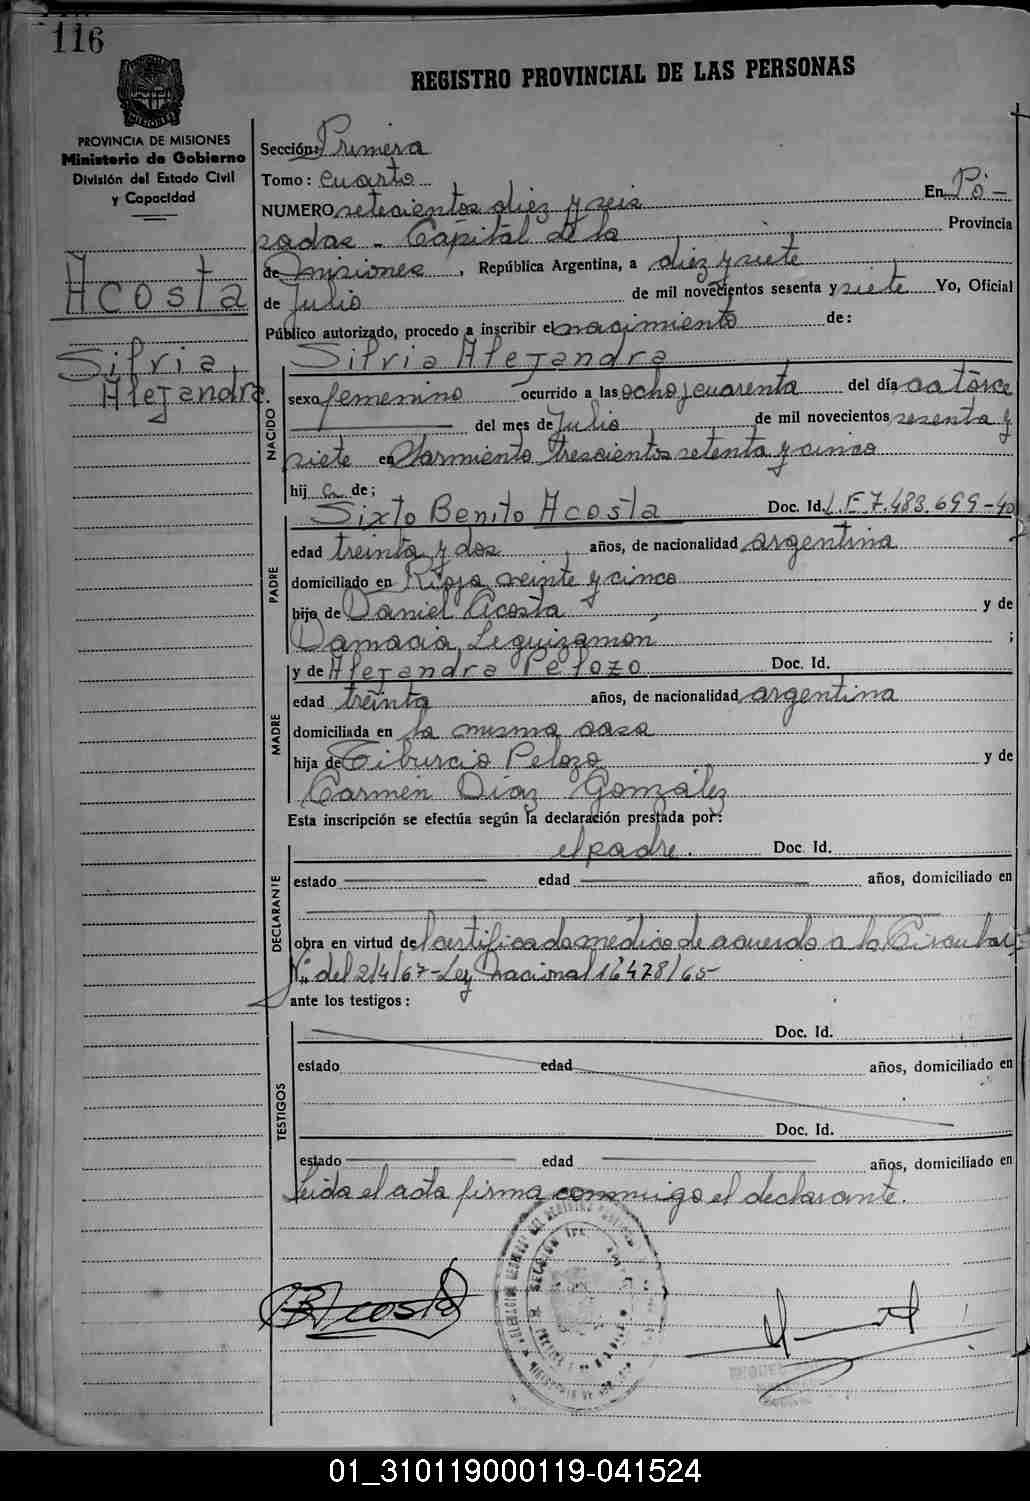 116
REGISTRO PROVINCIAL DE LAS PERSONAS
PROVINCIA DE MISIONES
Ministerio de Gobierno
División del Estado Civil
y Capacidad
Acosta
Silvia
Alejandra.
Sección: Primera
Tomo: cuarto
NUMERO setecientos diez y seis En Po-
sadas - Capital de la Provincia
de Misiones, República Argentina, a diez y siete
de Julio de mil novecientos sesenta y siete Yo, Oficial
Público autorizado, procedo a inscribir el nacimiento de:
Silvia Alejandra
NACIDO
sexo femenino ocurrido a las ocho y cuarenta del día catorce
del mes de Julio de mil novecientos sesenta y
siete en Sarmiento trescientos setenta y cinco
hij a de;
PADRE
Sixto Benito Acosta Doc. Id. L.E.7.483.699-
edad treinta y dos años, de nacionalidad argentina
domiciliado en Rioja veinte y cinco
hijo de Daniel Acosta y de
Damacia Leguizamon ;
MADRE
y de Alejandra Pelozo Doc. Id.
edad treinta años, de nacionalidad argentina
domiciliada en la misma casa
hija de Tiburcio Pelozo y de
Carmen Diaz Gonzalez
Esta inscripción se efectúa según la declaración prestada por:
DECLARANTE
el padre. Doc. Id.
estado edad años, domiciliado en
obra en virtud de l certificado medico de acuerdo a la Circular
Nº del 2/4/67-Ley Nacional 16478/65-
ante los testigos:
TESTIGOS
Doc. Id.
estado edad años, domiciliado en
Doc. Id.
estado edad años, domiciliado en
Leida el acta firma conmigo el declarante.
SBAcosta
01_310119000119-041524